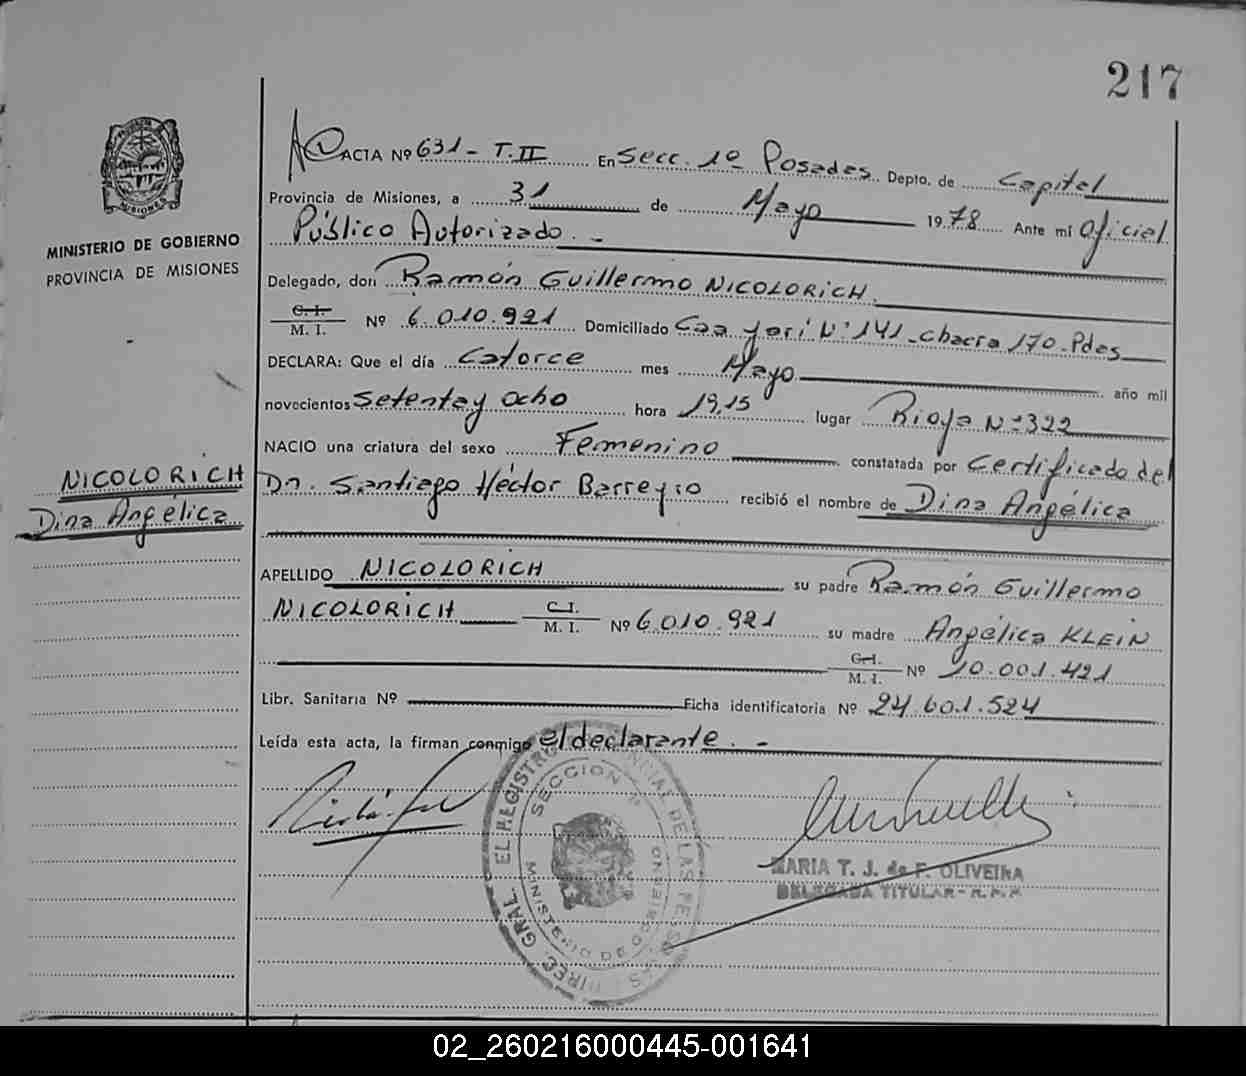 217
ACTA Nº 631 - T. II En Secc. 1º Posadas Depto. de Capital
Provincia de Misiones, a 31 de Mayo 1978 Ante mí Oficial
Público Autorizado. -
MINISTERIO DE GOBIERNO
PROVINCIA DE MISIONES
Delegado, don Ramón Guillermo NICOLORICH
C. I.
M. I. Nº 6.010.921 Domiciliado Caa Yarí Nº 141 - chacra 170 - Pdas
DECLARA: Que el día Catorce mes Mayo año mil
novecientos setenta y ocho hora 19,15 lugar Rioja Nº 322
NACIO una criatura del sexo Femenino constatada por Certificado del
NICOLORICH
Dina Angélica
Dr. Santiago Héctor Barreyro recibió el nombre de Dina Angélica
APELLIDO NICOLORICH su padre Ramón Guillermo
NICOLORICH C. I. M. I. Nº 6.010.921 su madre Angélica KLEIN
C. I. M. I. Nº 10.001.421
Libr. Sanitaria Nº Ficha identificatoria Nº 24.601.524
Leída esta acta, la firman conmigo el declarante. -
DIREC. GRAL. EL REGISTRO PROVINCIAL DE LAS PERSONAS
SECCION
MINISTERIO DE GOBIERNO
MARIA T. J. de F. OLIVEIRA
DELEGADA TITULAR - R.P.P.
02_260216000445-001641